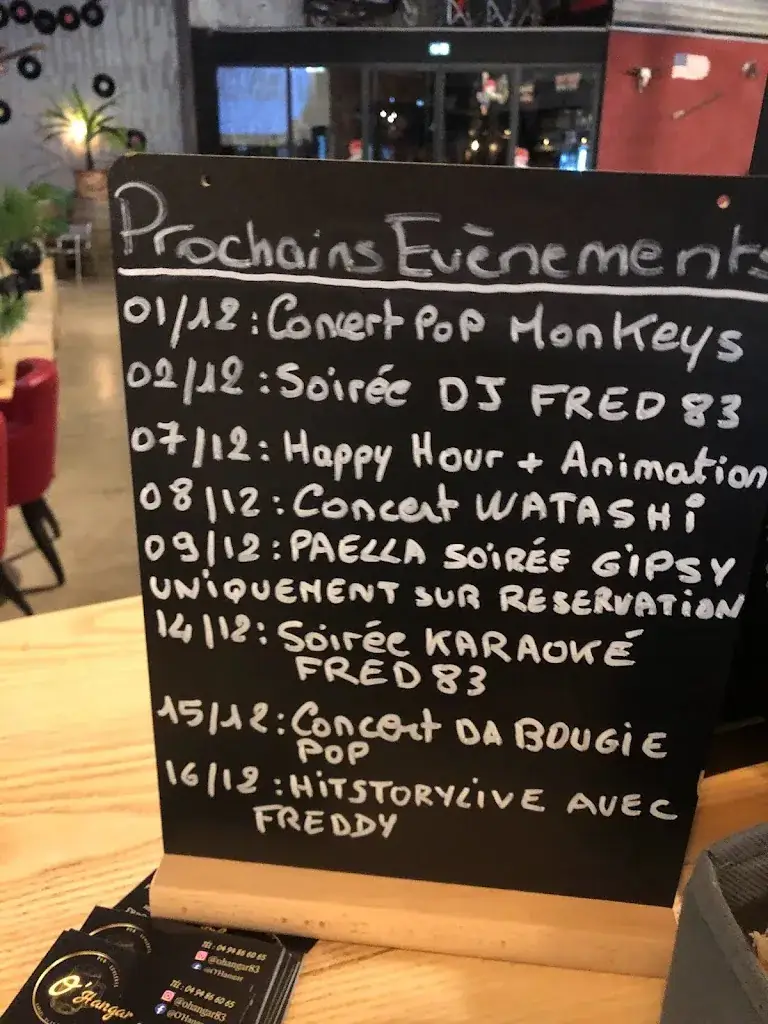 Prochains Evènements
01/12 : Concert POP MONKEYS
02/12 : Soirée DJ FRED 83
07/12 : Happy Hour + Animation
08/12 : Concert WATASHi
09/12 : PAELLA SOiRÉE GiPSY
UNiQUEMENT SUR RESERVATiON
14/12 : Soirée KARAOKÉ
FRED 83
15/12 : Concert DA BOUGiE
POP
16/12 : HiTSTORYLiVE AVEC
FREDDY
Tél : 04 94 86 60 65
@ohangar83
@O'Hangar
Tél : 04 94 86 60 65
@ohangar83
@O'Hangar
O'Hangar